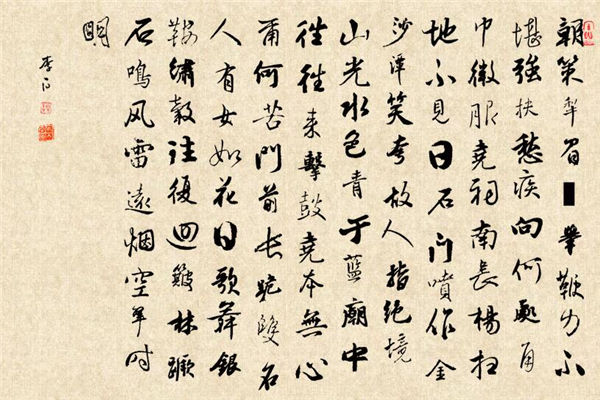 朝策犁眉■舉鞭力不
堪強扶愁疾向何處角
巾微服堯祠南長楊扫
地不見日石门噴作金
沙潭笑夸故人指绝境
山光水色青于藍廟中
往往来擊鼓堯本無心
爾何苦門前长跪雙石
人有女如花日歌舞銀
鞍繡轂往復迴簸林蹶
石鳴风雷遠烟空翠时
明
李白